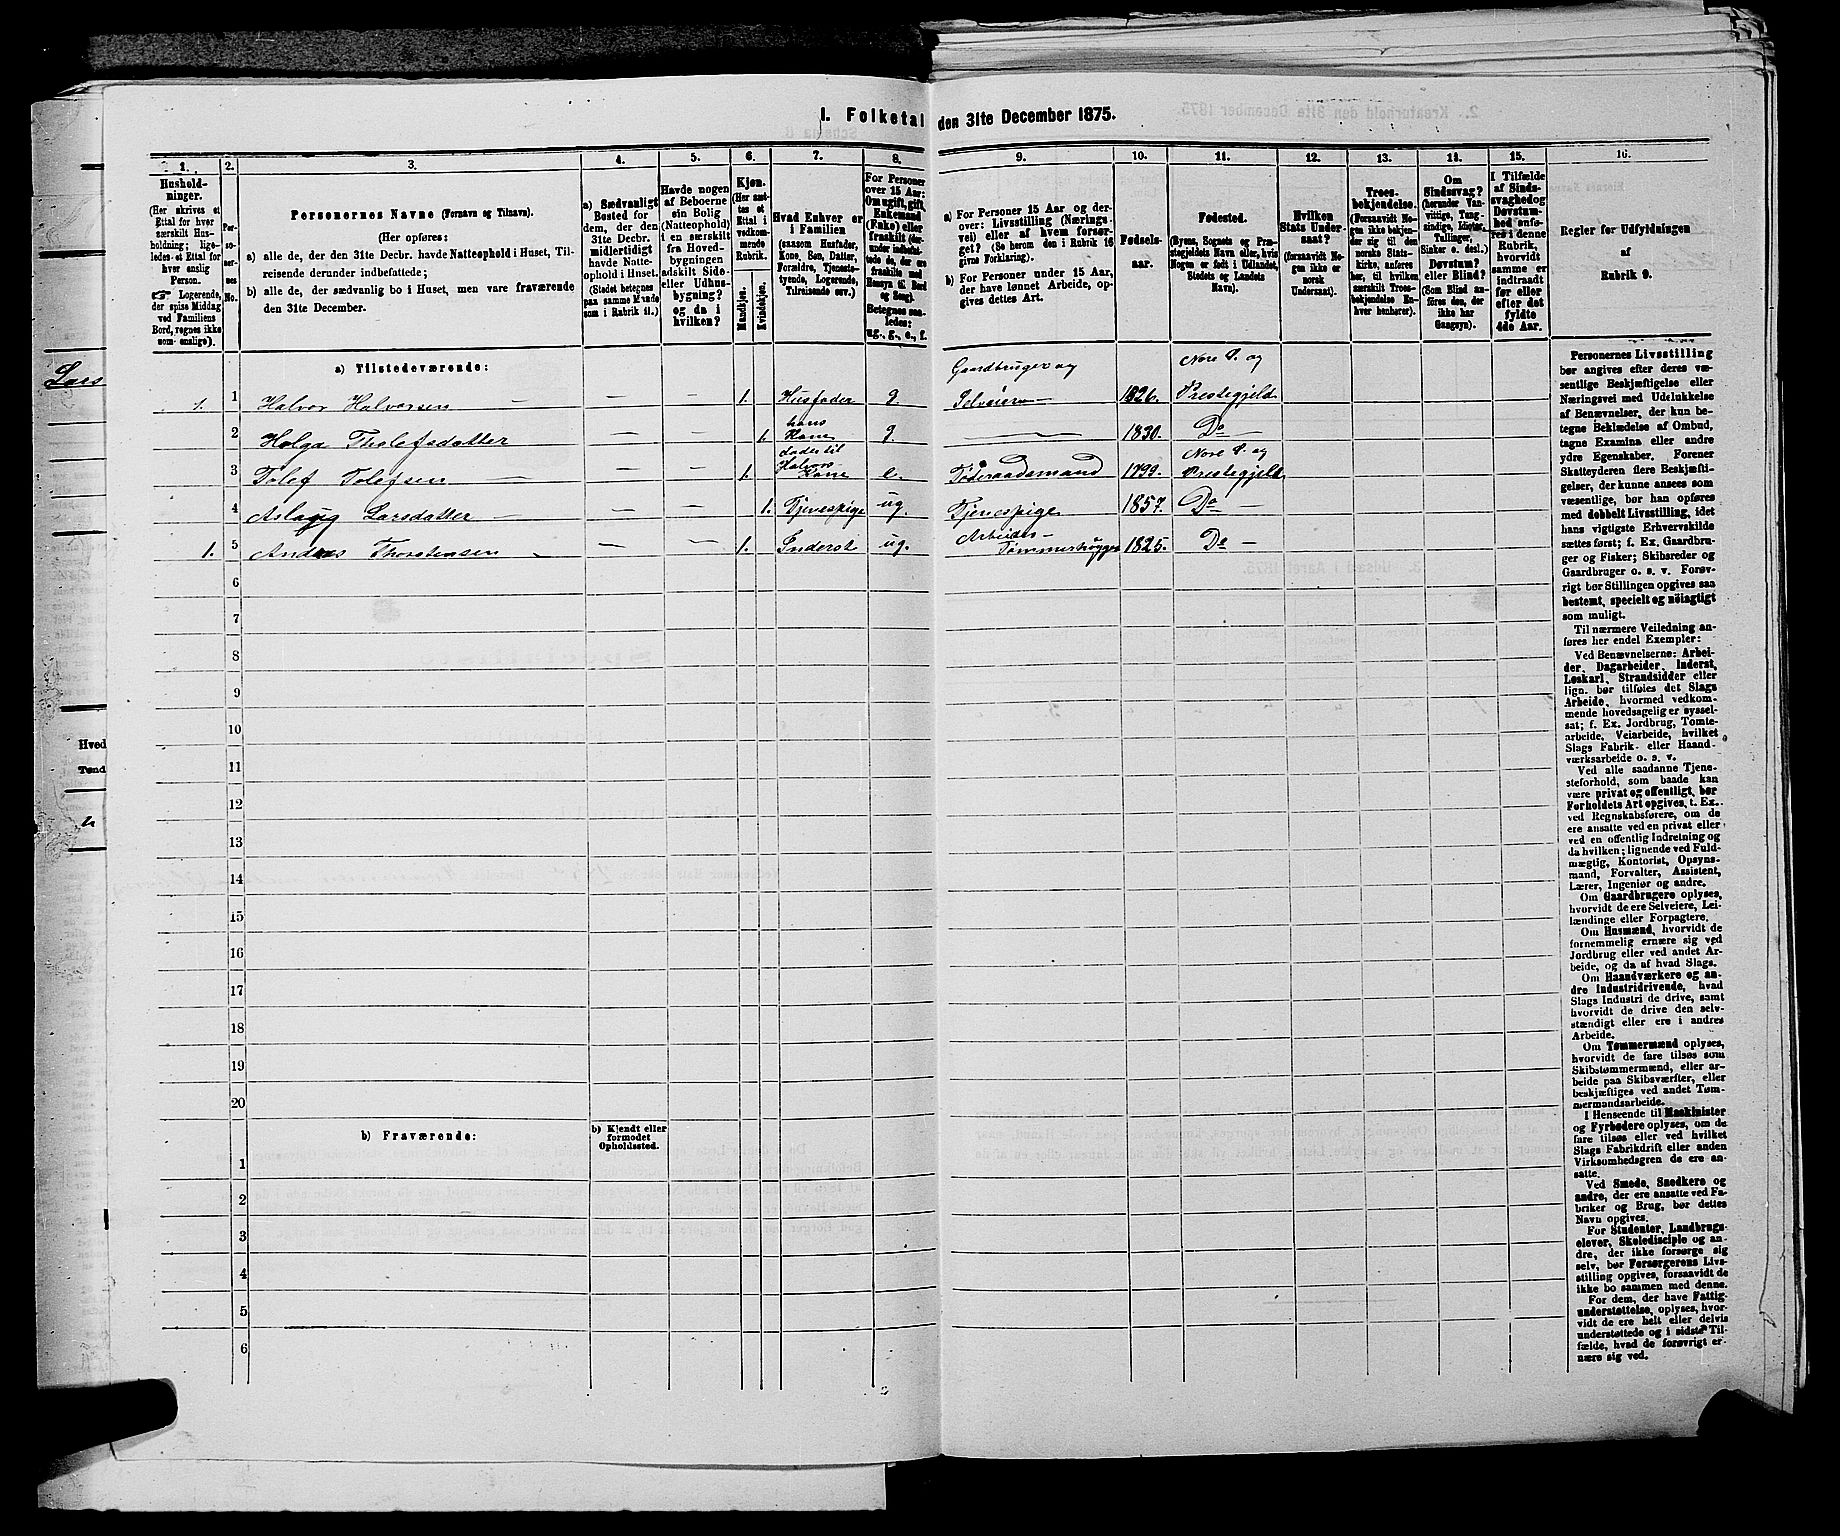 1. Folketal den 31te December 1875.
1.
2.
3.
4.
5.
6.
7.
8.
9.
10.
11.
12.
13.
14.
15.
16.
Hushold-
ninger.
(Her skrives et
Ettal for hver
særskilt Hus-
holdning; lige-
ledes et Ettal
for hver
enslig
Person.
☞ Logerende,
der spise Middag
ved Familiens
Bord, regnes ikke
som enslige).
Per-
so-
ner-
nes
No.
Personernes Navne (Fornavn og Tilnavn).
(Her opføres:
a) alle de, der den 31te Decbr. havde Natteophold i Huset, Til-
reisende derunder indbefattede;
b) alle de, der sædvanlig bo i Huset, men vare fraværende
den 31te December.
a) Sædvanligt
Bosted for
dem, der den
31te Decbr.
midlertidigt
havde Natte-
ophold i Huset.
(Stedet betegnes
paa samme Maade
som i Rubrik 11.)
Havde nogen
af Beboerne
sin Bolig
(Natteophold)
i en særskilt
fra Hoved-
bygningen
adskilt Side-
eller Udhus-
bygning?
og da i
hvilken?
Kjøn.
(Her sæt-
tes et
Ettal i
vedkom-
mende
Rubrik.
Mandkjøn.
Kvindekjøn.
Hvad Enhver er
i Familien
(saasom Husfader,
Kone, Søn, Datter,
Forældre, Tjeneste-
tyende, Logerende,
Tilreisende osv.)
For Personer
over 15 Aar:
Om ugift, gift,
Enkemand
(Enke) eller
fraskilt (der-
under indbefat-
tede de, der ere
fraskilte med
Hensyn til Bord
og Seng).
Betegnes saa-
ledes:
ug., g., e., f.
a) For Personer 15 Aar og der-
over: Livsstilling (Nærings-
vei) eller af hvem forsør-
get? (Se herom den i Rubrik 16
givne Forklaring).
b) For Personer under 15 Aar,
der have lønnet Arbeide, op-
gives dettes Art.
Fødsels-
aar.
Fødested.
(Byens, Sognets og Præ-
stegjeldets Navn eller, hvis
Nogen er født i Udlandet,
Stedets og Landets
Navn).
Hvilken
Stats Under-
saat?
(forsaavidt No-
gen ikke er
norsk
Undersaat).
Troes-
bekjendelse.
(Forsaavidt No-
gen ikke bekjen-
der sig til den
norske Stats-
kirke, anføres
her, til hvilken
særskilt Troes-
bekjendelse En-
hver henhører).
Om
Sindssvag?
(herunder Van-
vittige, Tung-
sindige, Idioter,
Tullinger,
Sinker o. desl.)
Døvstum?
eller Blind?
(Som Blind an-
føres den, der
ikke har
Gangsyn).
I Tilfælde
af Sinds-
svaghed og
Døvstum-
hed anfø-
res i denne
Rubrik,
hvorvidt
samme er
indtraadt
før eller
efter det
fyldte
4de Aar.
Regler for Udfyldningen
af
Rubrik 9.
a) Tilstedeværende:
1. 1 Halvor Halvorsen — — 1. Husfader g. Gaardbruger og Selveier 1826. Nore S. og Prestegjeld
2 Helga Tholefsdatter — — 1. hans Kone g. — 1830. Do
3 Tolef Tolefsen — — 1. fader til Halvors Kone e. Føderaadsmand 1799. Nore S. og Prestegjeld
4 Aslaug Larsdatter — — 1. Tjenespige ug. Tjenespige 1857. Do —
1. 5 Andres Thorstensen — — 1. Inderst ug. Arbeider- Tømmerhugger 1825. Do —
6
7
8
9
10
11
12
13
14
15
16
17
18
19
20
b) Fraværende:
b) Kjendt eller
formodet
Opholdssted.
1
2
3
4
5
6
Personernes Livsstilling
bør angives efter deres væ-
sentlige Beskjæftigelse eller
Næringsvei med Udelukkelse
af Benævnelser, der kun be-
tegne Beklædelse af Ombud,
tagne Examina eller andre
ydre Egenskaber. Forener
Skatteyderen flere Beskjæfti-
gelser, der kunne ansees som
væsentlige, bør han opføres
med dobbelt Livsstilling, idet
hans vigtigste Erhvervskilde
sættes først; f. Ex. Gaardbru-
ger og Fisker; Skibsreder og
Gaardbruger o. s. v. Forøv-
rigt bør Stillingen opgives saa
bestemt, specielt og nöiagtigt
som muligt.
Til nærmere Veiledning an-
føres her endel Exempler:
Ved Benævnelserne: Arbei-
der, Dagarbeider, Inderst,
Løskarl, Strandsidder eller
lign. bør tilføies det Slags
Arbeide, hvormed vedkom-
mende hovedsagelig er syssel-
sat; f. Ex. Jordbrug, Tomte-
arbeide, Veiarbeide, hvilket
Slags Fabrik- eller Haand-
værksarbeide o. s. v.
Ved alle saadanne Tjene-
steforhold, som baade kan
være privat og offentligt, bør
Forholdets Art opgives, t. Ex.
ved Regnskabsførere, om de
ere ansatte ved en privat eller
ved en offentlig Indretning og
da hvilken; lignende ved Fuld-
mægtig, Kontorist, Opsyns-
mand, Forvalter, Assistent,
Lærer, Ingeniør og andre.
Om Gaardbrugere oplyses,
hvorvidt de ere Selveiere, Lei-
lændinge eller Forpagtere.
Om Husmænd, hvorvidt de
fornemmelig ernære sig ved
Jordbrug eller ved andet Ar-
beide, og da af hvad Slags.
Om Haandværkere og an-
dre Industridrivende, hvad
Slags Industri de drive, samt
hvorvidt de drive den selv-
stændigt eller ere i andres
Arbeide.
Om Tømmermænd oplyses,
hvorvidt de fare tilsøs som
Skibstømmermænd, eller ar-
beide paa Skibsværfter, eller
beskjæftiges ved andet Tøm-
mermandsarbeide.
I Henseende til Maskinister
og Fyrbødere oplyses, om de
fare tilsøs eller ved hvilket
Slags Fabrikdrift eller anden
Virksomhedsgren de ere an-
satte.
Ved Smede, Snedkere og
andre, der ere ansatte ved Fa-
briker og Brug, bør dettes
Navn opgives.
For Studenter, Landbrugs-
elever, Skoledisciple og an-
dre, der ikke forsørge sig
selv, bør Forsørgerens Livs-
stilling opgives, forsaavidt de
ikke bo sammen med denne.
For dem, der have Fattig-
understøttelse, oplyses, hvor-
vidt de ere helt eller delvis
understøttede og i sidste Til-
fælde, hvad de forøvrigt er-
nære sig ved.
Lars
Hved
Tønd